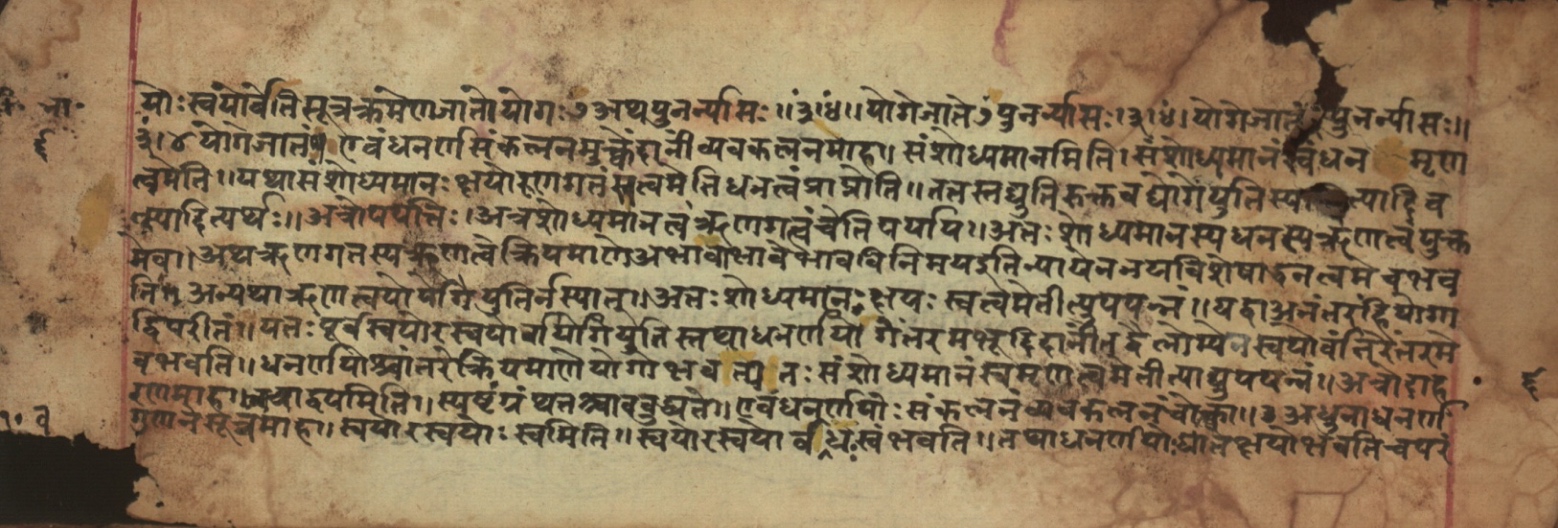 योः स्वयोर्वेति सूत्रक्रमेण जातो योगः ७ अथ पुनर्न्यासः ॥ ३ं । ४ं ॥ योगे जाते ७ं पुनर्न्यासः । ३ । ४ं । योगे जातं १ं पुनर्न्यासः ॥
३ं । ४ योगे जातं १ एवं धनर्णसंकलनमुक्त्वेदानीं व्यवकलनमाह । संशोध्यमानमिति । संशोध्यमानं स्वं धन मृण
त्वमेति ॥ यथा संशोध्यमानः क्षयो ऋणगतं स्वत्वमेति धनत्वं प्राप्नोति ॥ ततस्तद्युतिरुक्तवद्योगे युतिः स्या
ण्स्यादित्यर्थः ॥ अत्रोपपत्तिः । अत्र शोध्यमानत्वं ऋणगत्वं चेति पर्यायः । अतः शोध्यमानस्य धनस्य ऋणत्वं युक्त
मेव । अथ ऋणगतस्य ऋणत्वे क्रियमाणे अभावाभावे भावविनिमय इति न्यायेन नयविशेषाद्धनत्वमेव भव
ति अन्यथा ऋणत्वयोर्योगे युतिर्न स्यात् ॥ अतः शोध्यमानः क्षयः स्वत्वमेतीत्युपपन्नं ॥ यद्वा अनंतरं हि योगा
द्विपरीतं ॥ यतः पूर्वं स्वयोरस्वयोर्वा योगे युतिस्तथा धनर्णयोगेंतरमभूदिदानीं तद्वैलोम्येन स्वयोर्वांतिरेंतरमे
व भवति ॥ धनर्णयोश्चांतरे क्रियमाणे योगो भव त्य तः संशोध्यमानं स्वमृणत्वमेतीत्याद्युपपन्नं ॥ अत्रोदाह
रणमाह । त्रयाद्वयमिति ॥ स्पष्टं ग्रंथतश्चावबुद्ध्यते ॥ एवं धनर्णयोः संकलनं व्यवकलनं चोक्त्वा ॥ ३ अधुना धनर्ण
गुणने सूत्रमाह । स्वयोरस्वयोः स्वमिति ॥ स्वयोरस्वयोर्वधः स्वं भवति ॥ तथा धनर्णयोर्घाते क्षयो भवति च परं